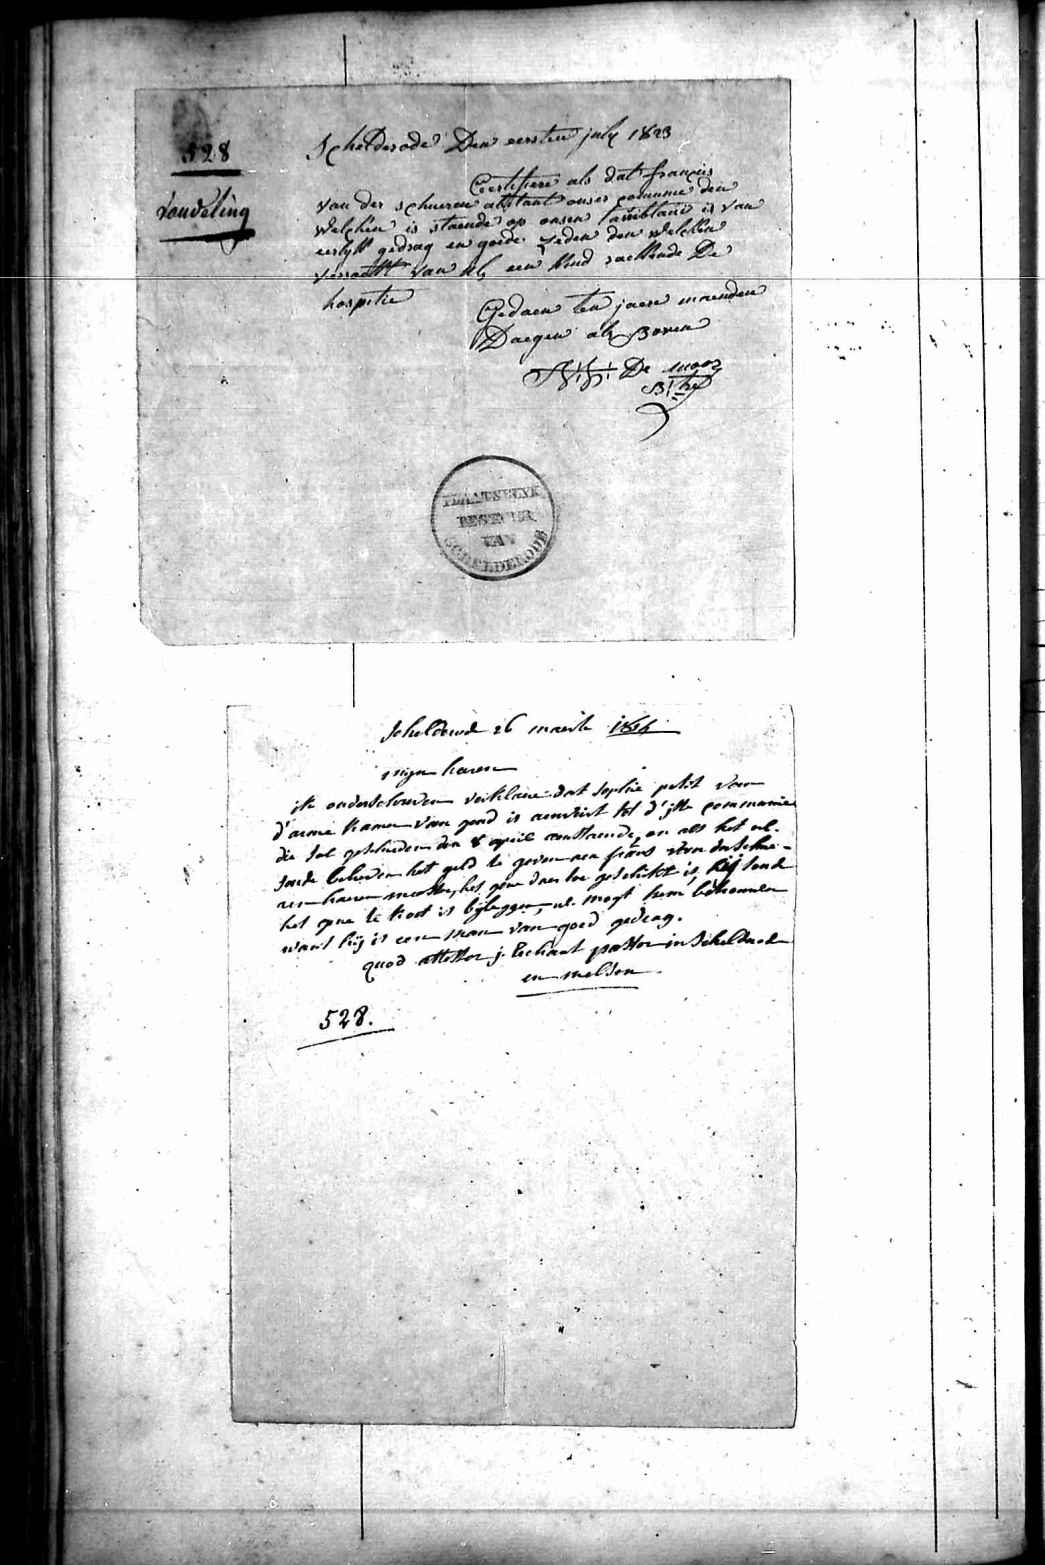 528
Vondeling
Schelderode Den eersten july 1823
Certifiere als dat françies
van der schueren attitant onser commune den
welcken is staende op onsen taeiblau is van
eerlyk gedrag en goede zeden den welcken
versoekt van UL een kind raekende De
hospitie
Gedaen ten jaere maenden
Daegen als Boven
De moor
PLAATSELYK
BESTUUR
VAN
SCHELDERODE
Schelderode 26 maerte
mijn heeren
ik onderschreven verklaere dat sophie petit van
d'arme kamer van gend is aenveirt tot d' communie
die sal geschieden den 8 april aenstaende, en als het ul.
soude believen het geld te geven aen frans van der schue-
ren haeren meester, het gene daer toe geschikt is, hij soude
het gene te kort is bijleggen, ul. mogt hem betrouwen
want hij is een man van goed gedrag.
quod attestor j. pastor in Schelderode
en melsen.
528.